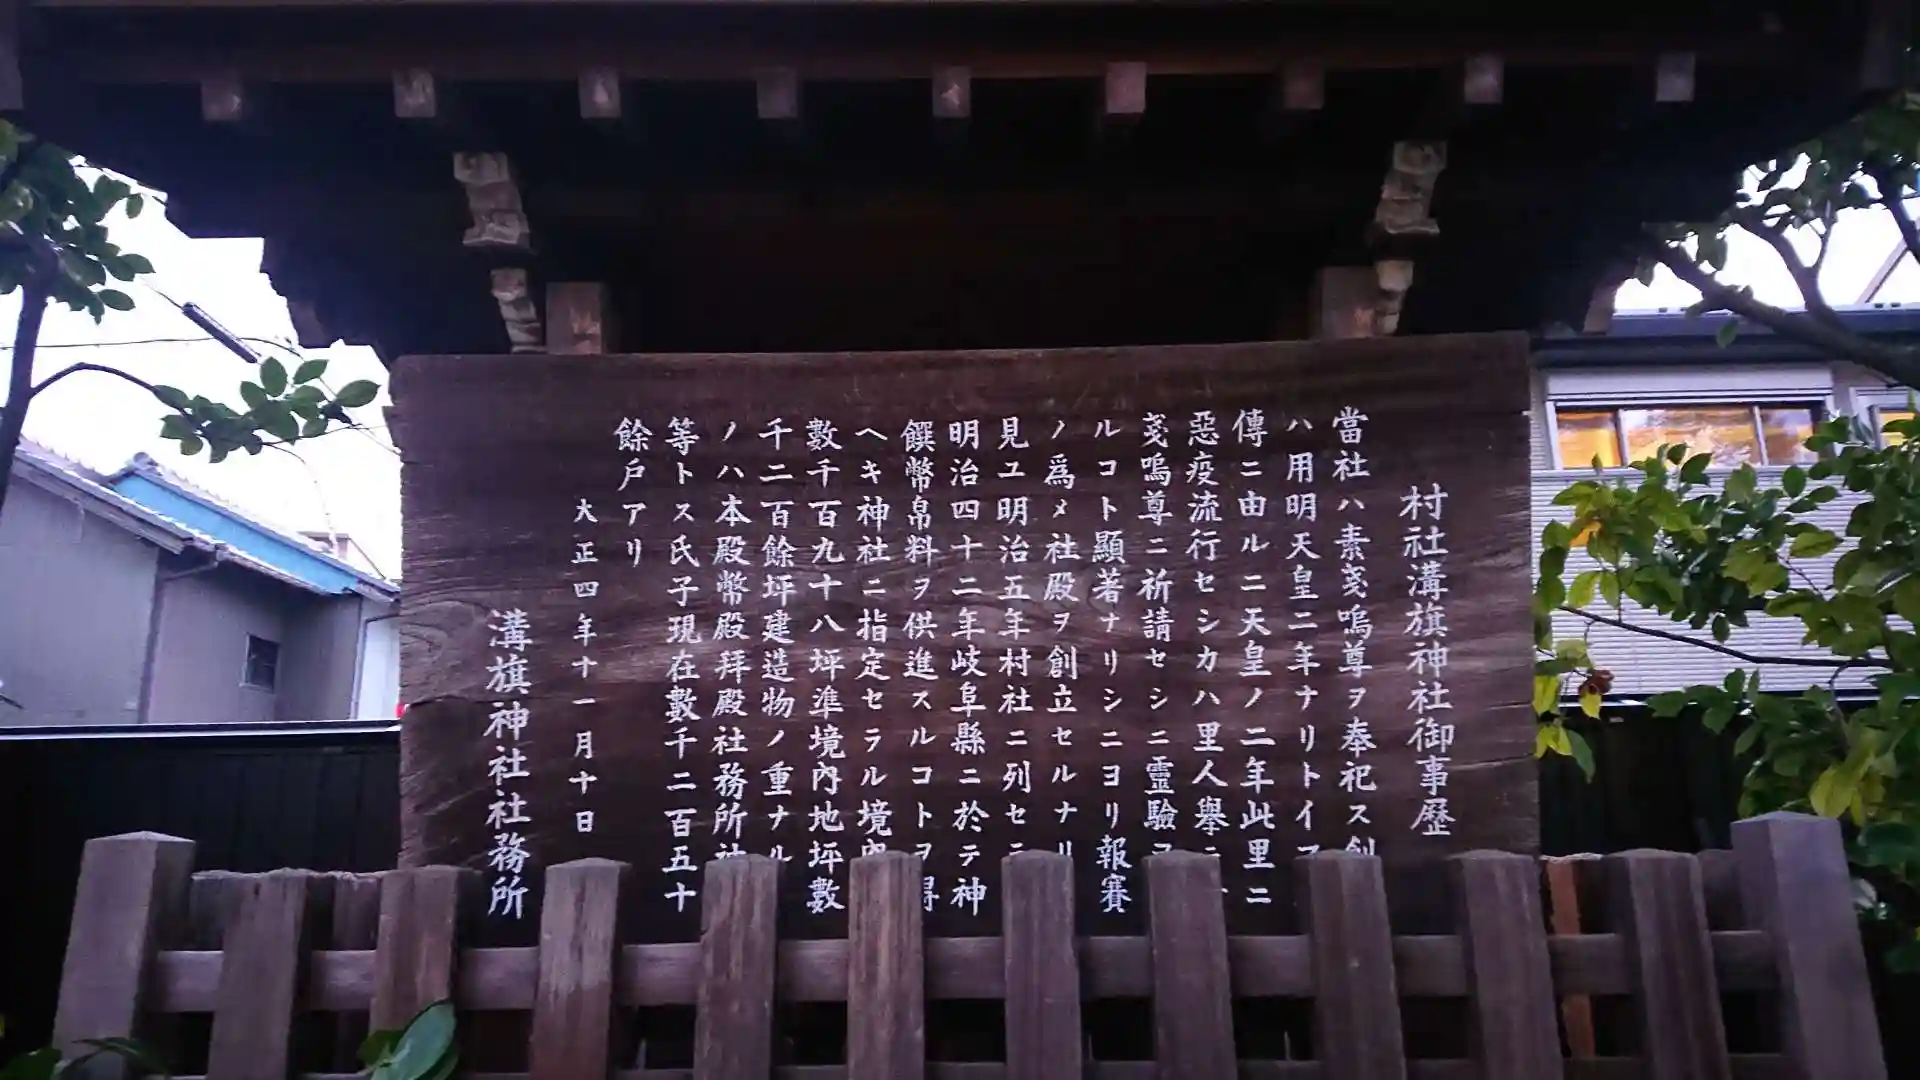 村社溝旗神社御事歴
當社ハ素戔嗚尊ヲ奉祀ス創
ハ用明天皇二年ナリトイフ
傳ニ由ル二天皇ノ二年此里ニ
惡疫流行セシカハ里人擧
戔嗚尊ニ祈請セシニ靈驗
ルコト顯著ナリシニヨリ報賽
ノ爲メ社殿ヲ創立セルナリ
見ユ明治五年村社ニ列セラ
明治四十二年岐阜縣ニ於テ神
饌幣帛料ヲ供進スルコトヲ得
ヘキ神社ニ指定セラル境内
數千百九十八坪準境內地坪數
千二百餘坪建造物ノ重ナル
ノハ本殿幣殿拜殿社務所社
等トス氏子現在數千二百五十
餘戶アリ
大正四年十一月十日
溝旗神社社務所